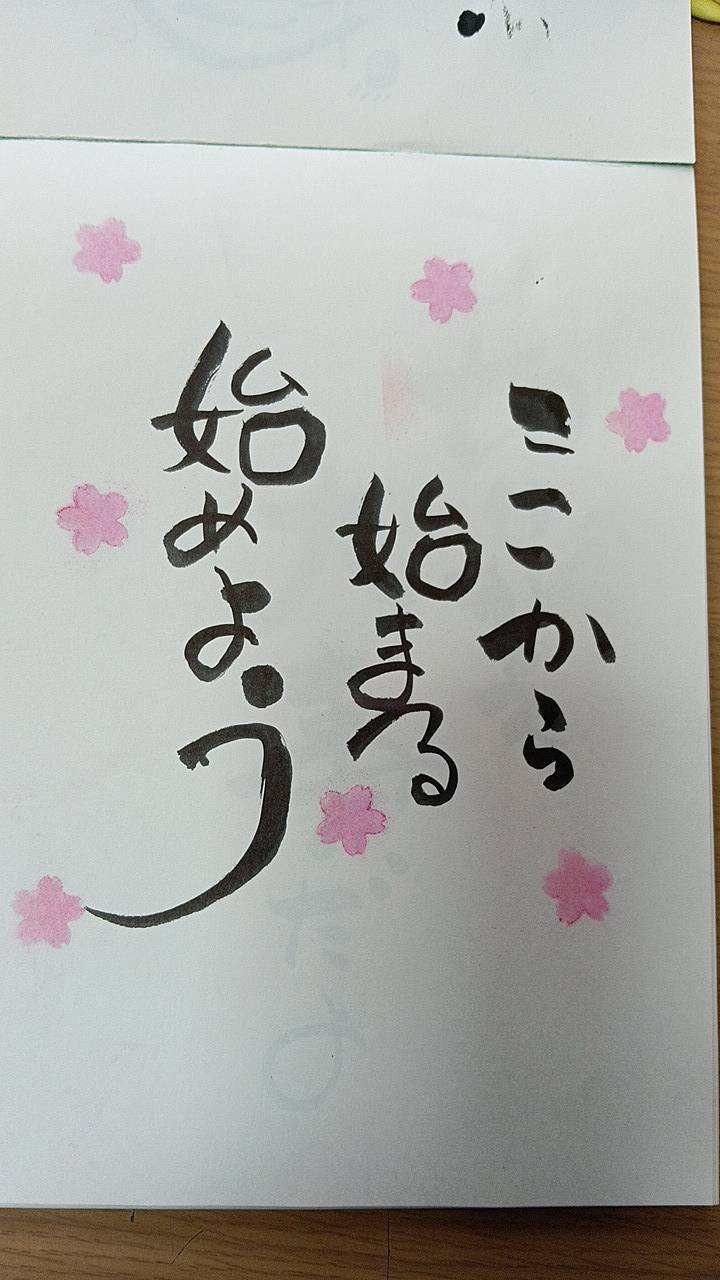 ここから
始まる
始めよう